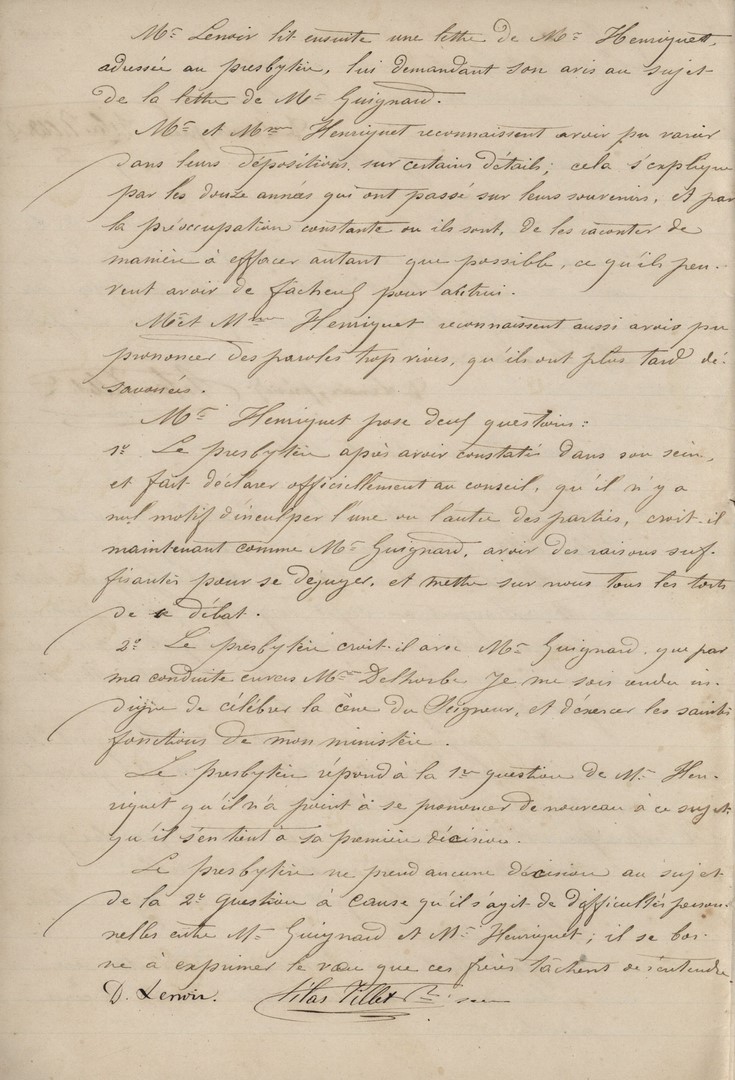 Mr Lenoir lit ensuite une lettre de Mr Henriquet,
adressée au presbytère, lui demandant son avis au sujet
de la lettre de Mr Guignard.
Mr et Mme Henriquet reconnaissent avoir pu varier
dans leurs dépositions, sur certains détails; cela s'explique
par les douze années qui ont passé sur leurs souvenirs, et par
la préoccupation constante ou ils sont, de les raconter de
manière à effacer autant que possible, ce qu'ils peu-
vent avoir de fâcheux pour autrui.
Mr et Mme Henriquet reconnaissent aussi avoir pu
prononcer des paroles trop vives, qu'ils ont plus tard dé-
savouées.
Mr Henriquet pose deux questions:
1o Le presbytère après avoir constaté dans son sein,
et fait déclarer officiellement au conseil, qu'il n'y a
nul motif d'inculper l'une ou l'autre des parties, croit-il
maintenant comme Mr Guignard, avoir des raisons suf-
fisantes pour se déjuger, et mettre sur nous tous les torts
de ce débat.
2o Le presbytère croit-il avec Mr Guignard, que par
ma conduite envers Mme Delhorbe je me sois rendu in-
digne de célébrer la Cène du Seigneur, et d'exercer les saintes
fonctions de mon ministère.
Le presbytère répond à la 1re question de Mr Hen-
riquet qu'il n'a point à se prononcer de nouveau à ce sujet
qu'il s'en tient à sa première décision.
Le presbytère ne prend aucune décision au sujet
de la 2e question à cause qu'il s'agit de difficultés person-
nelles entre Mr Guignard et Mr Henriquet; il se bor-
ne à exprimer le vœu que ces frères tâchent de s'entendre.
D. Lenoir. Silas Pillet